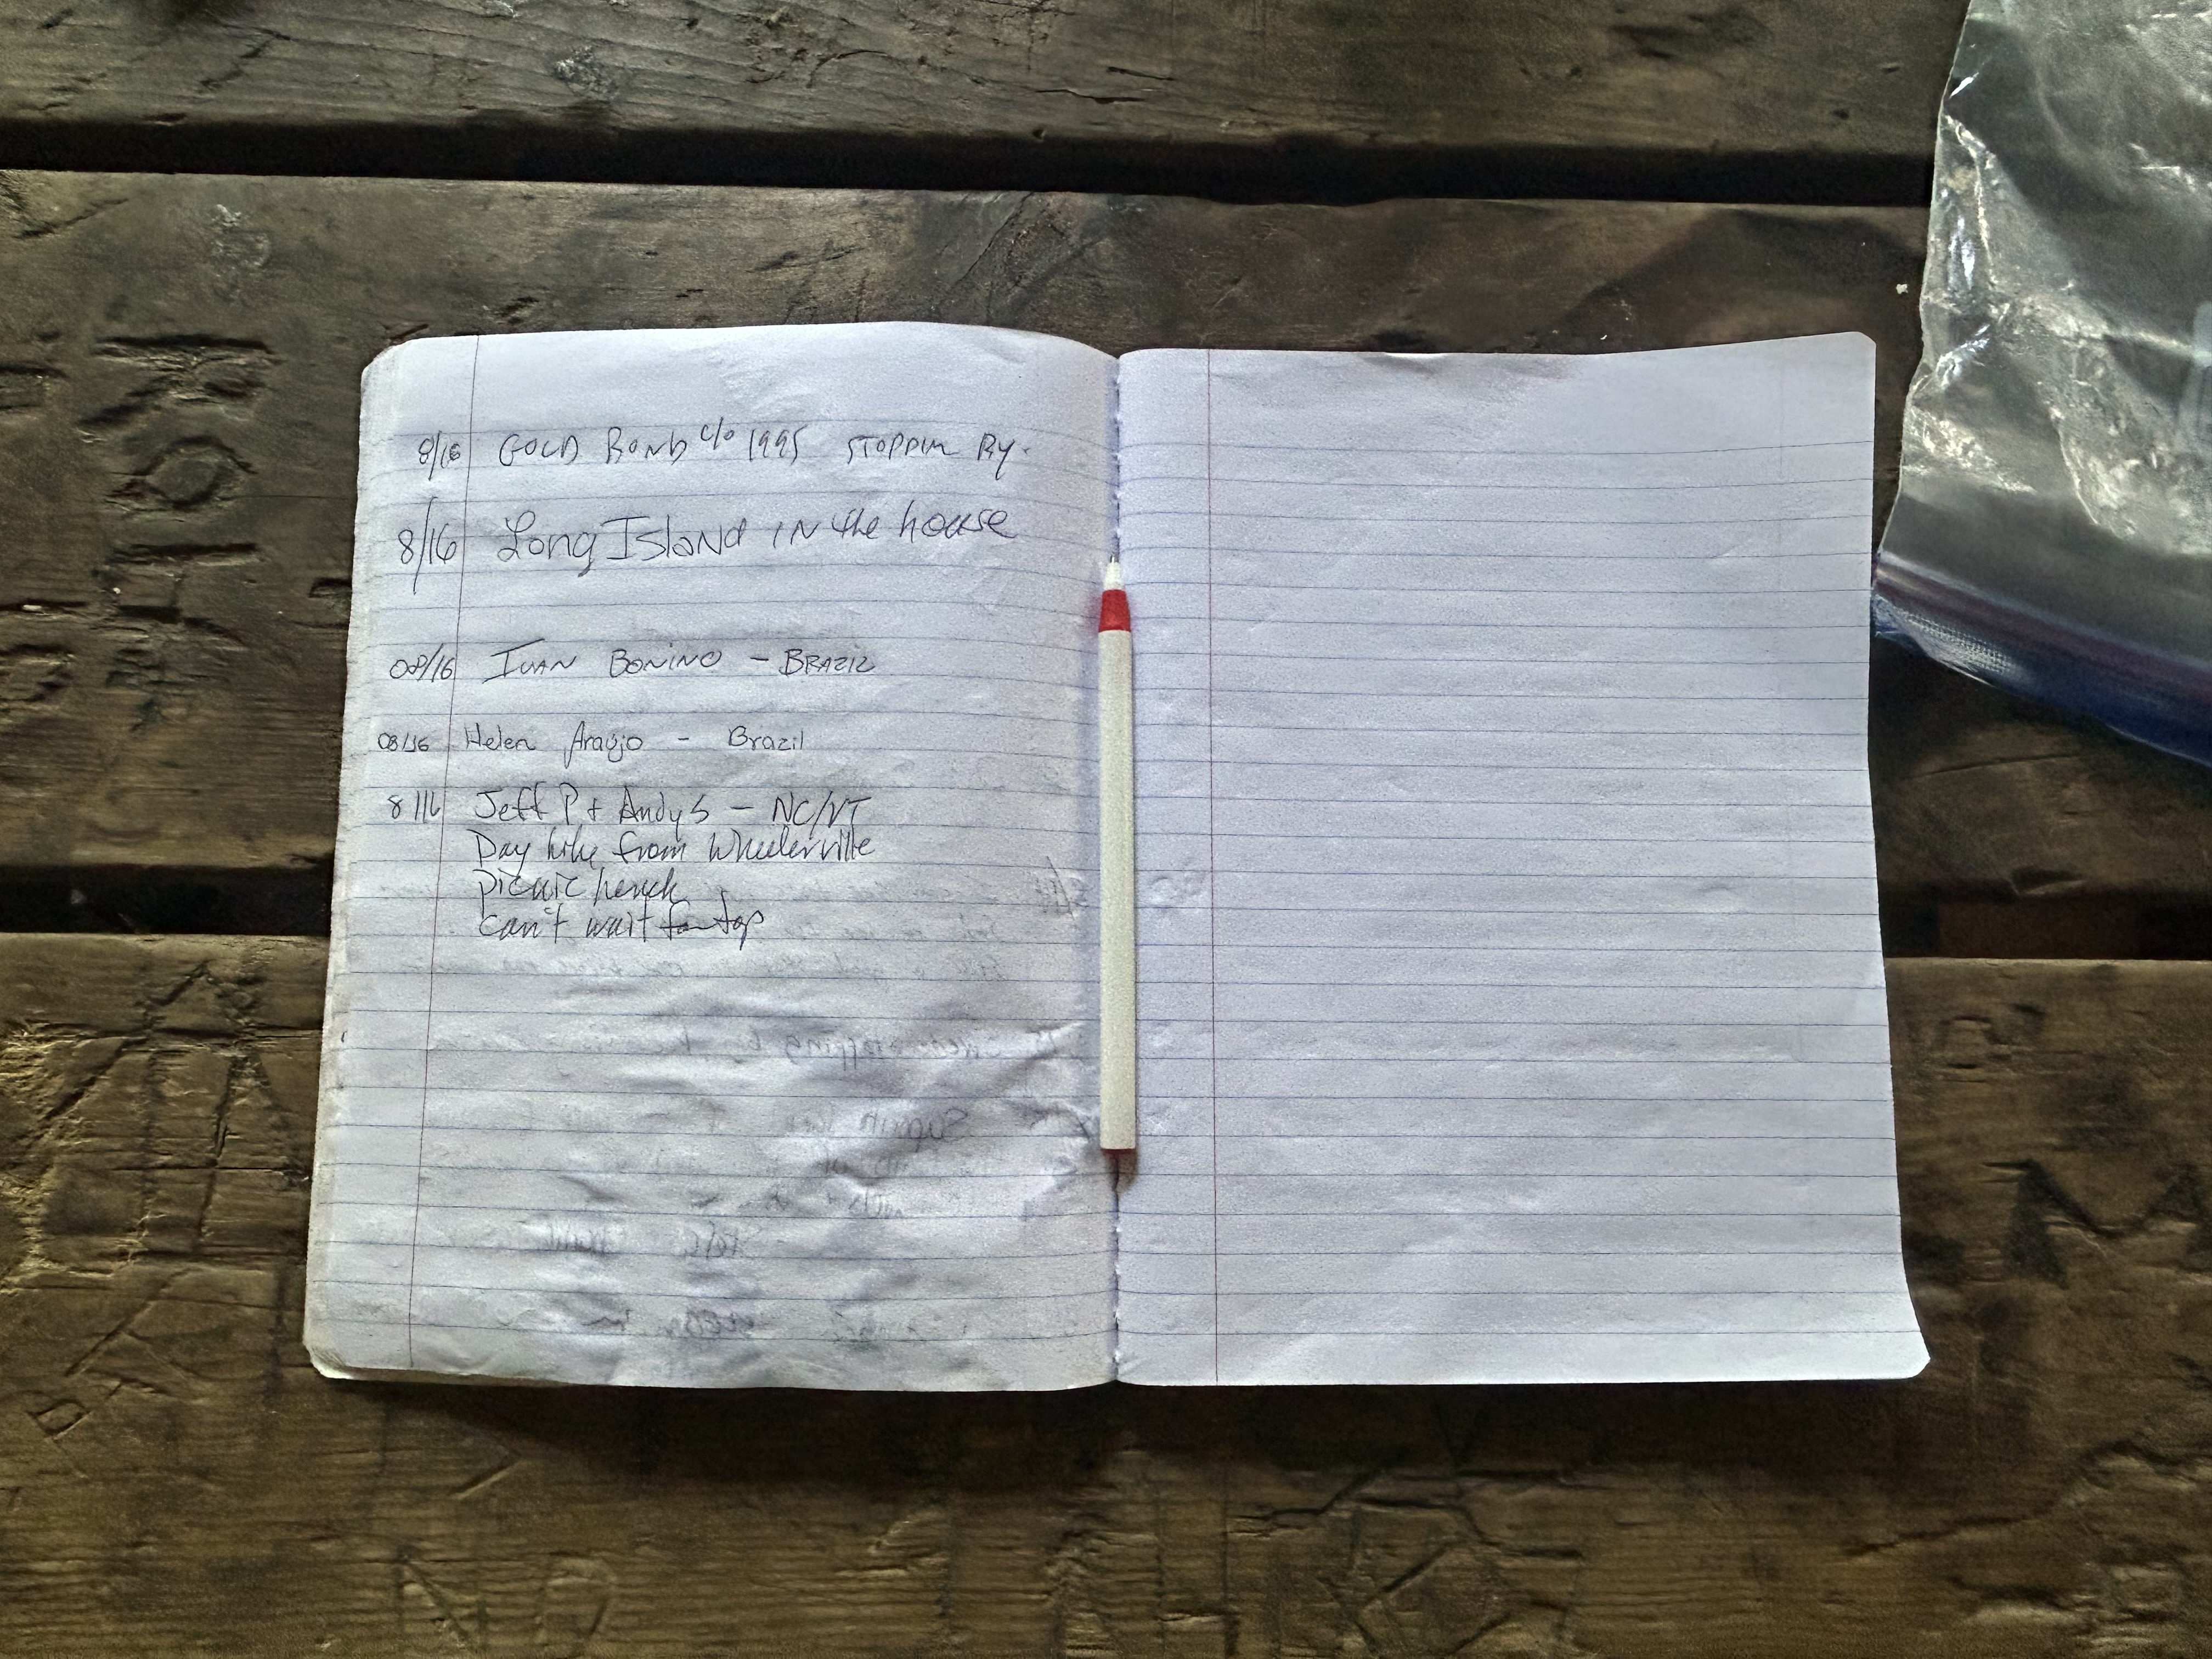 8/16 GOLD BOND c/o 1995 STOPPIN BY.
8/16 Long Island in the house
08/16 IVAN BONINO - BRAZIL
08/16 Helen Araújo - Brazil
8/16 Jeff P + Andy S - NC/VT
Day hike from Wheelerville
picnic
can't wait for top